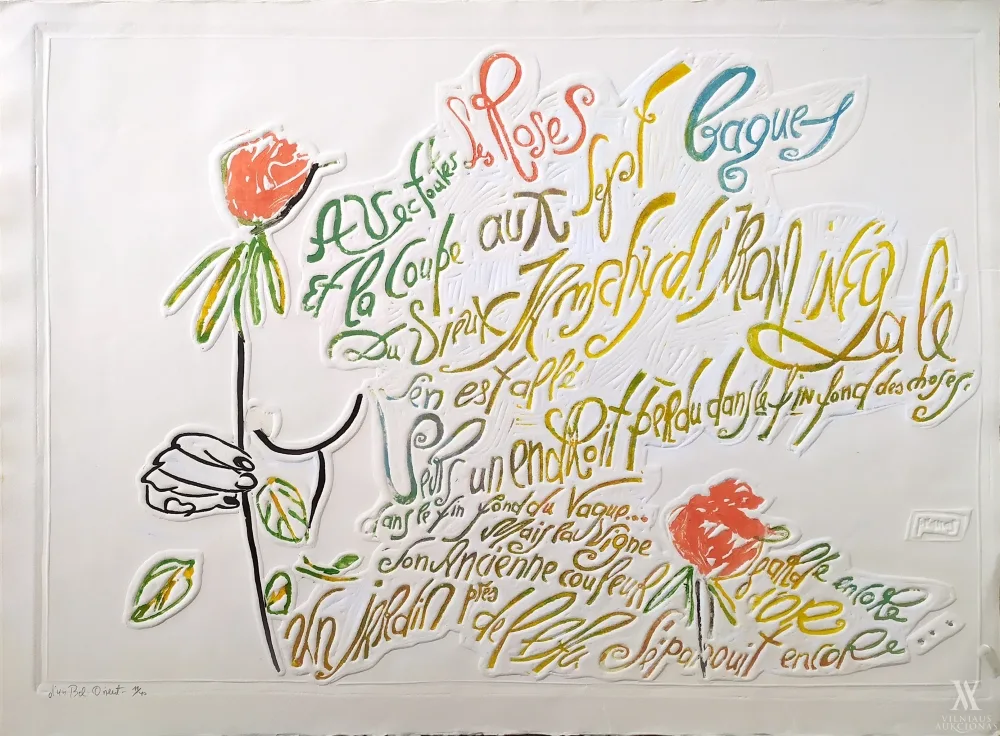 Avec toutes ses Roses
Et la Coupe aux sept bagues
Du Vieux Jamschyd, l'IRAN inégale
s'en est allé
Vers un endroit perdu dans le fin fond des choses.
dans le fin fond du Vague...
Mais la Vigne garde encore
son Ancienne couleur d'or
Un Jardin près de l'Eau s'épanouit encore...
d'un Bel Orient
VILNIAUS
AUKCIONAS